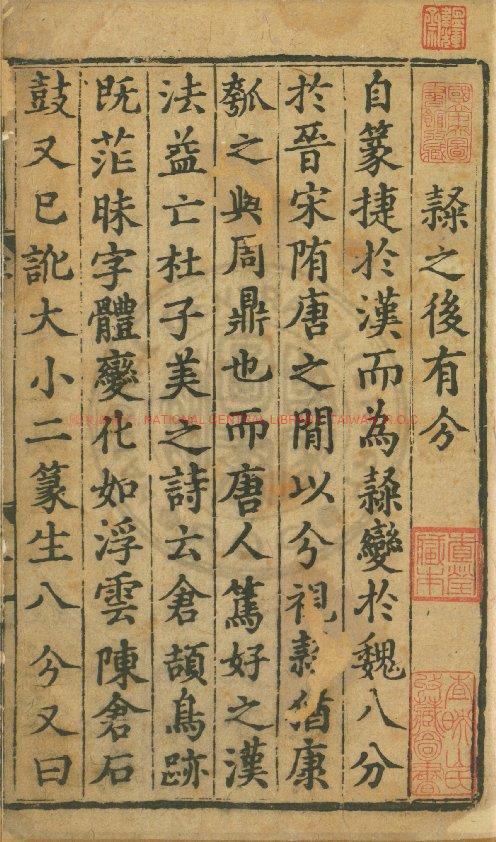 隸之後有分
自篆捷於漢而為隸變於魏八分
於晉宋隋唐之閒以分視隸猶康
瓠之與周鼎也而唐人篤好之漢
法益亡杜子美之詩云倉頡鳥跡
既茫昧字體變化如浮雲陳倉石
鼓又已訛大小二篆生八分又曰
NATIONAL CENTRAL LIBRARY, TAIWAN, R.O.C